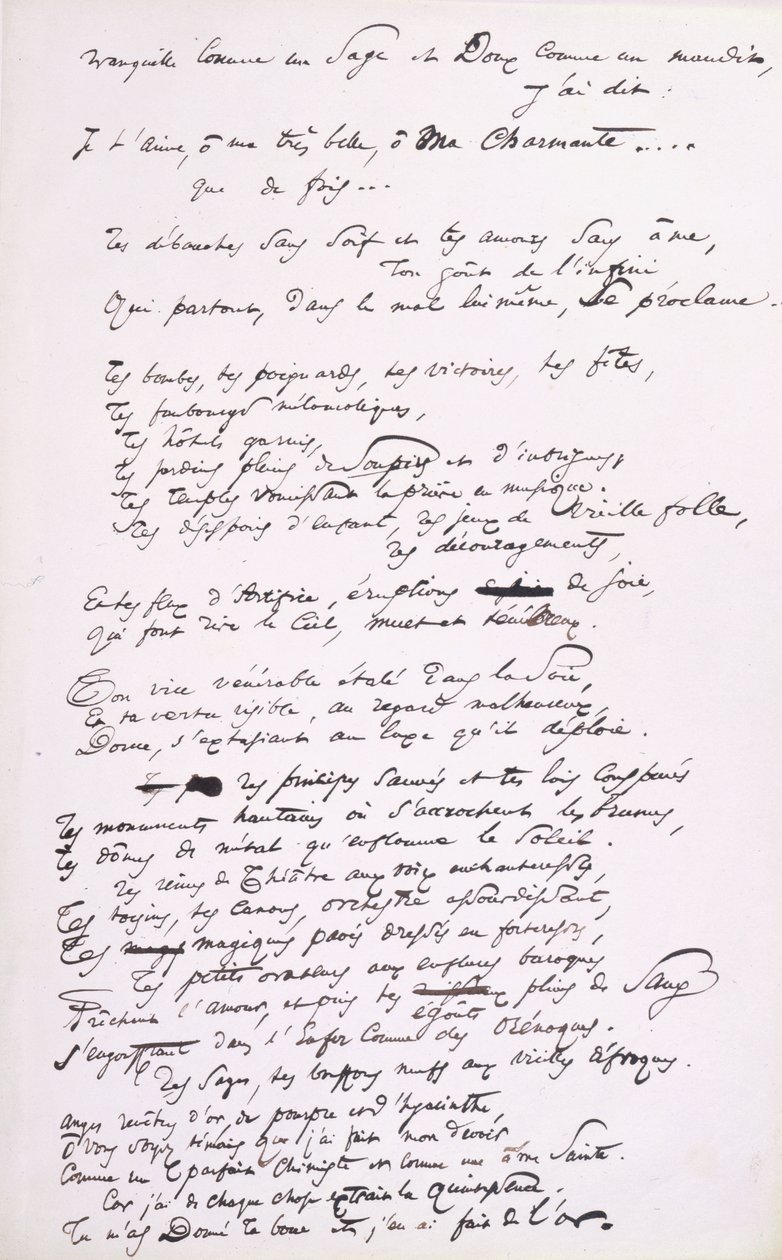 Tranquille comme un Sage et Doux comme un maudit,
J'ai dit :
Je t'aime, ô ma très belle, ô Ma Charmante ....
que de fois...
Tes débauches Sans Soif et tes amours Sans âme,
Ton goût de l'infini
Qui partout, Dans le mal lui même, Se proclame.
Tes bombes, tes poignards, tes victoires, tes fêtes,
Tes faubourgs mélancoliques,
Tes hôtels garnis,
Tes jardins pleins de Soupirs et d'intrigues,
Tes Temples vomissant la prière en musique.
Tes désespoirs d'enfant, tes jeux de Vieille folle,
Tes découragements,
Et tes feux d'Artifice, éruptions de Joie,
Qui font rire le Ciel, muet et ténébreux.
Ton vice vénérable étalé Dans la Soie,
Et ta vertu risible, au regard malheureux,
Douce, s'extasiant au luxe qu'il déploie.
Tes principes Sauvés et tes lois Conspuées
Tes monuments hautains où S'accrochent les Brumes,
Tes dômes de métal qu'enflamme le Soleil.
Tes reines de Théâtre aux voix enchanteresses,
Tes tocsins, tes Canons, orchestre assourdissant,
Tes magiques pavés dressés en forteresses,
Tes petits orateurs aux enflures baroques
Prêchant l'amour, et puis tes pleins de Sang
égouts
S'engouffrant dans l'Enfer Comme des Orénoques.
Tes Sages, tes bouffons neufs aux vieilles défroques.
Anges revêtus d'or, de pourpre et d'hyacinthe,
Ô vous soyez témoins que j'ai fait mon Devoir
Comme un parfait Chimiste et comme une âme Sainte.
Car j'ai de chaque chose extrait la quintessence.
Tu m'as Donné ta boue et j'en ai fait de l'or.